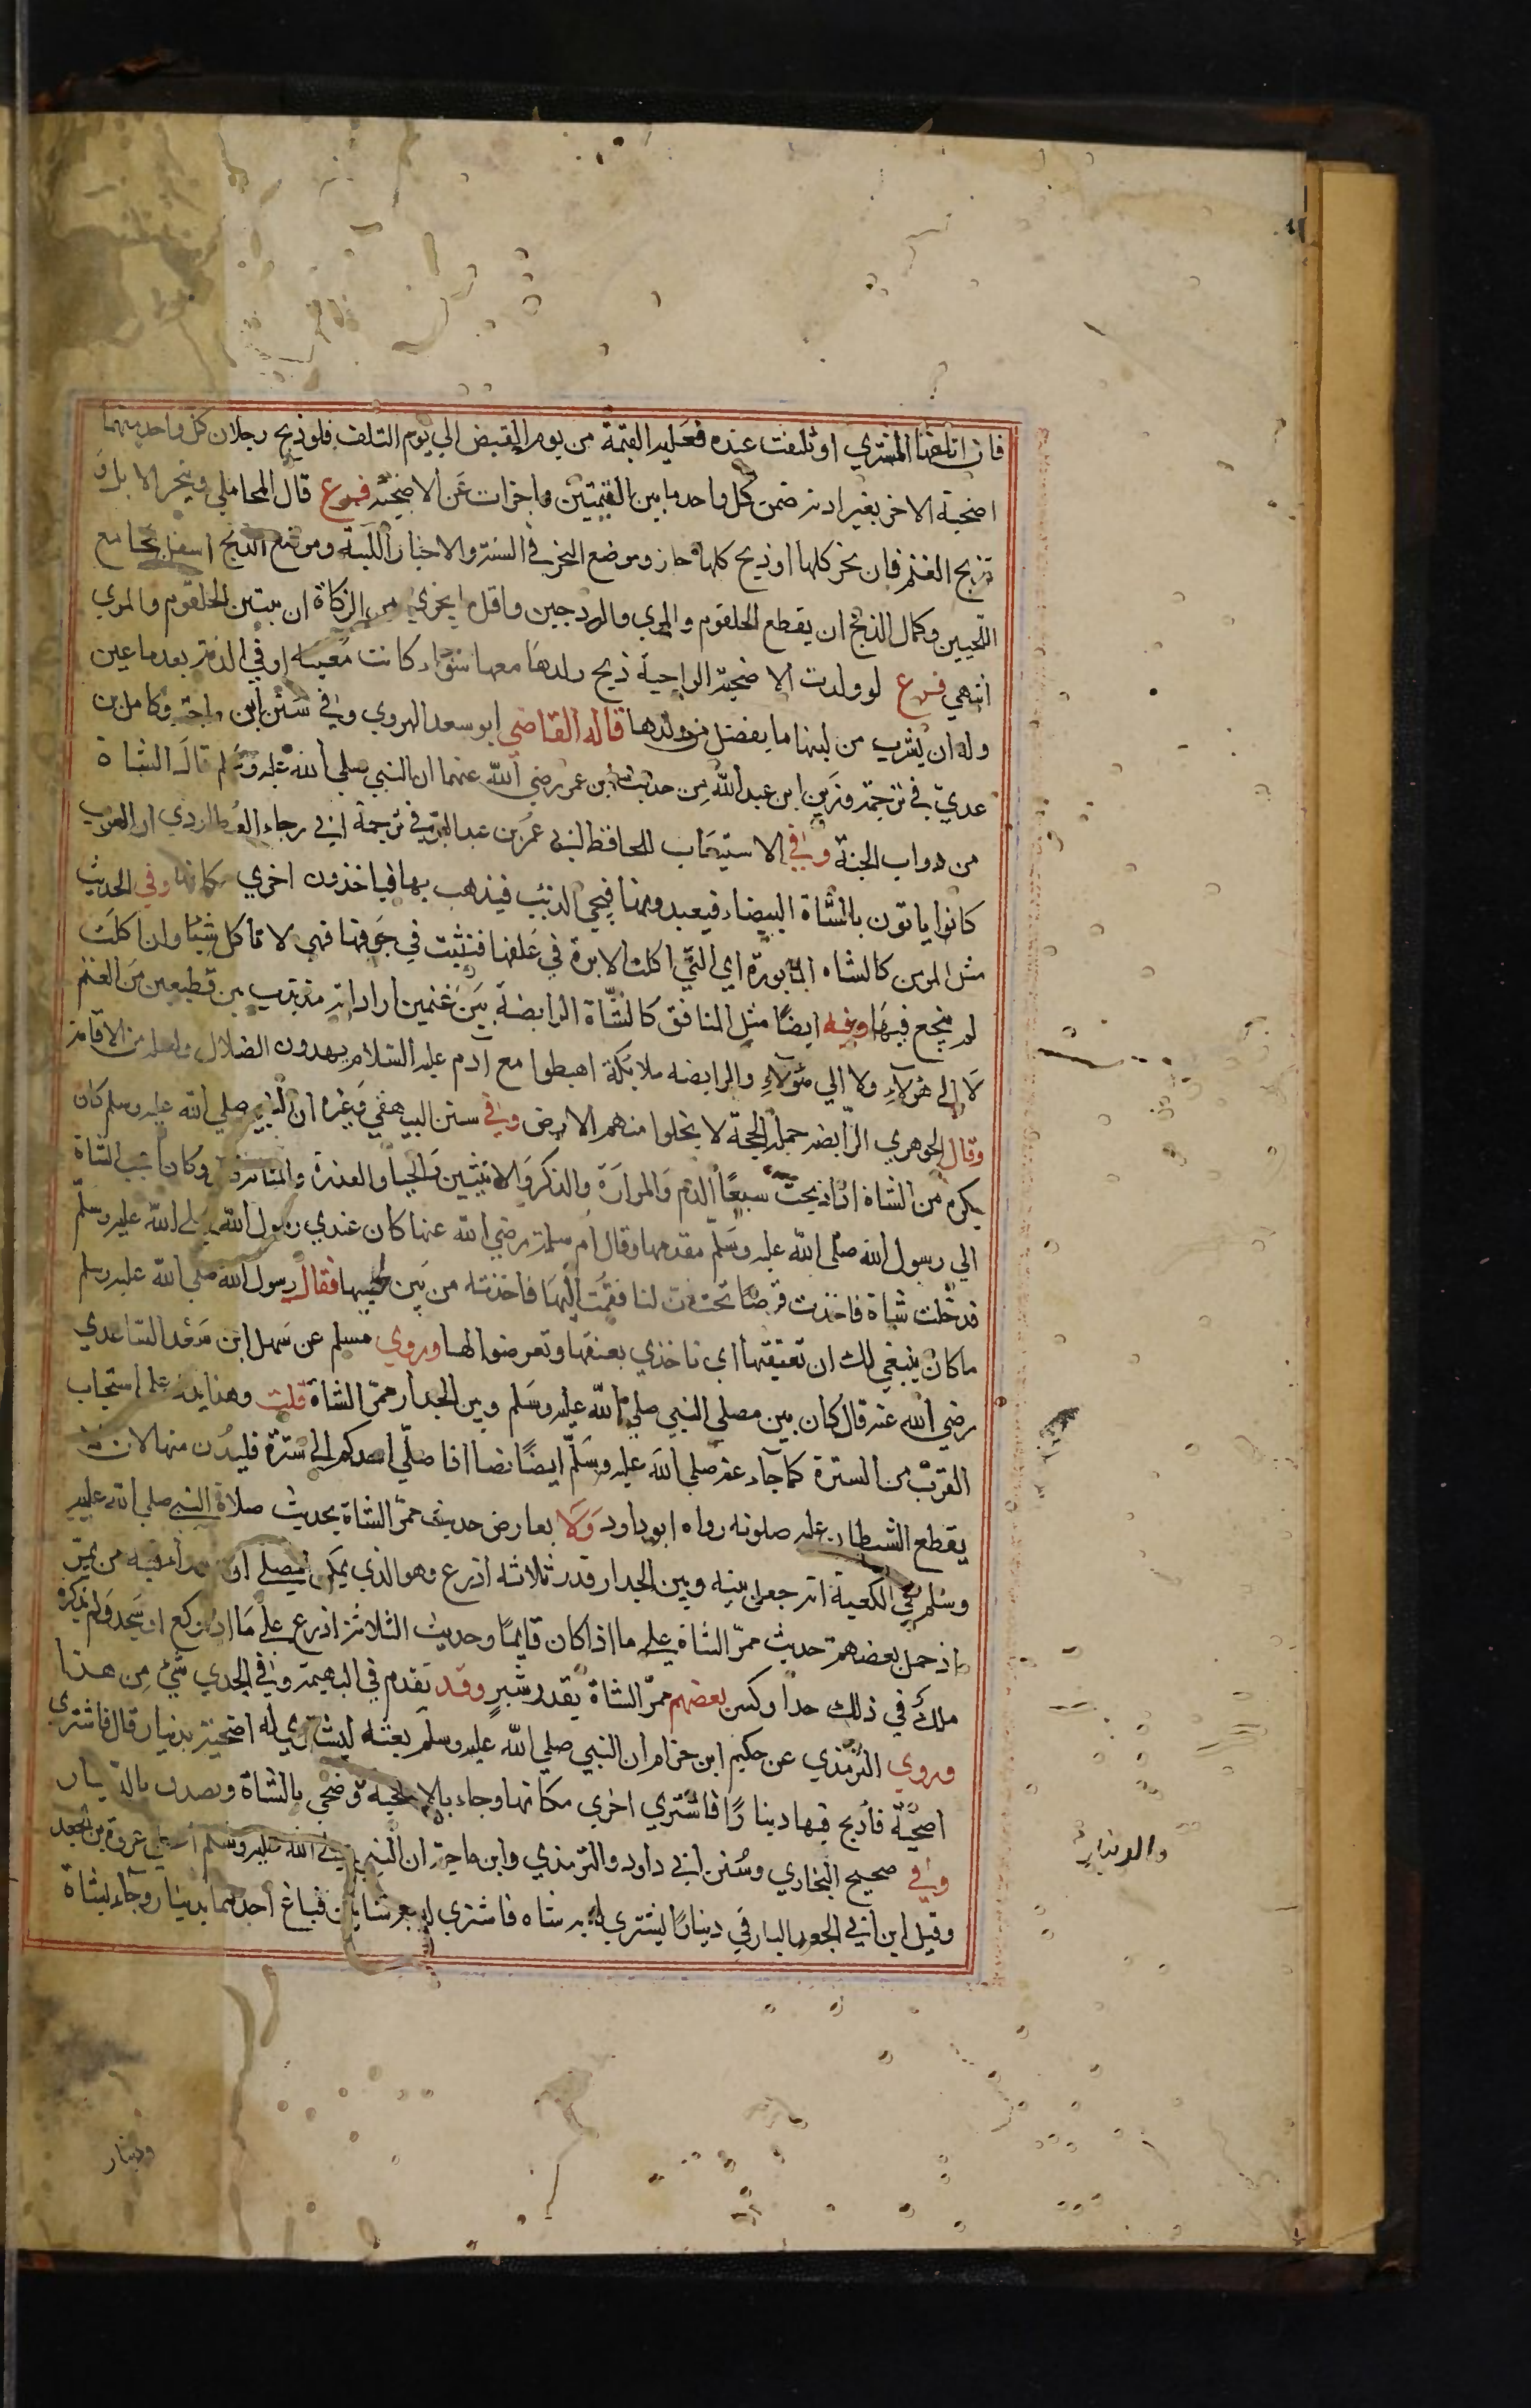 فان اتلفها المشتري او تلفت عنده فعليه القيمة من يوم القبض الي يوم التلف فلو ذبح رجلان كل واحد منهما
اضحية الاخر بغير اذنه ضمن كل واحد ما بين القيمتين واجزات عن الاضحية فرع قال المحاملي وينحر الابل و
تذبح الغنم فان نحر كلها او ذبح كلها جاز وموضع النحر في السنة والاختيار اللبة وموضع الذبح اسفل مجامع
اللحيين وكمال الذبح ان يقطع الحلقوم والمري والودجين واقل ما يجزي من الزكاة ان يبين الحلقوم والمري
انتهي فرع لو ولدت الاضحية الواجبة ذبح ولدها معها سواء كانت معينة او في الذمة بعد ما عين
وله ان يشرب من لبنها ما يفضل من ولدها قاله القاضي ابو سعد الهروي وفي سنن ابن ماجة وكامل بن
عدي في ترجمة وزرين ابن عبد الله من حديث ابن عمر رضي الله عنهما ان النبي صلي الله عليه وسلم قال الشاة
من دواب الجنة وفي الاستيعاب للحافظ ابي عمر بن عبد البر في ترجمة ابي رجاء العطاردي ان العرب
كانوا ياتون بالشاة البيضاء فيعبدونها فيجي الذئب فيذهب بها فياخذون اخري مكانها وفي الحديث
مثل المومن كالشاه المابورة اي التي اكلت الابرة في علفها فنشبت في جوفها فهي لا تاكل شيا وان اكلت
لم ينجع فيها وفيه ايضا مثل المنافق كالشاة الرابضة بين غنمين اراد انه متذبذب بين قطيعين من الغنم
لا الي هولاء ولا الي هولاء والرابضه ملائكة اهبطوا مع آدم عليه السلام يهدون الضلال ولعله من الاقامة
وقال الجوهري الرابضه حملة الحجة لا يخلوا منهم الارض وفي سنن البيهقي وغيره ان النبي صلي الله عليه وسلم كان
يكره من الشاة اذا ذبحت سبعا الدم والمرارة والذكر والانثيين والحيا والغدة والمثانة وكان احب الشاة
الي رسول الله صلي الله عليه وسلم مقدمها وقال ام سلمة رضي الله عنها كان عندي رسول الله صلي الله عليه وسلم
فدخلت شاة فاخذت قرصا تحت دن لنا فقمت اليها فاخذته من بين لحييها فقال رسول الله صلي الله عليه وسلم
ما كان ينبغي لك ان تعنقتها اي تاخذي بعنقها وتعرضوا لها وروي مسلم عن سهل ابن سعد الساعدي
رضي الله عنه قال كان بين مصلي النبي صلي الله عليه وسلم وبين الجدار ممر الشاة قلت وهذا يدل علي استحباب
القرب من السترة كما جاء عنه صلي الله عليه وسلم ايضا نصا اذا صلي احدكم الي سترة فليدن منها لان لا
يقطع الشيطان عليه صلوته رواه ابو داود ولا يعارض حديث ممر الشاة بحديث صلاة النبي صلي الله عليه
وسلم في الكعبة انه جعل بينه وبين الجدار قدر ثلاثه اذرع وهو الذي يمكن المصلي ان يدرا فيه من يمر
اذ حمل بعضهم حديث ممر الشاة علي ما اذا كان قايما وحديث الثلاثة اذرع علي ما اذا ركع او سجد ولم يذكر
ملك في ذلك حدا وكسن بعضهم ممر الشاة بقدر شبر وقد تقدم في البهيمة وفي الجدي شئ من هذا
وروي الترمذي عن حكيم ابن حزام ان النبي صلي الله عليه وسلم بعثه ليشتري له اضحية بدينار قال فاشتري
اضحية فاربح فيها دينارا فاشتري اخري مكانها وجاء بالاضحية وضحي بالشاة وتصدق بالدينار
وفي صحيح البخاري وسنن ابي داود والترمذي وابن ماجة ان النبي صلي الله عليه وسلم اعطي عروة بن الجعد
وقيل ابن ابي الجعد البارقي دينارا ليشتري له به شاه فاشتري له به شاتين فباع احدهما بدينار وجاء بشاة
والدينار
ودينار